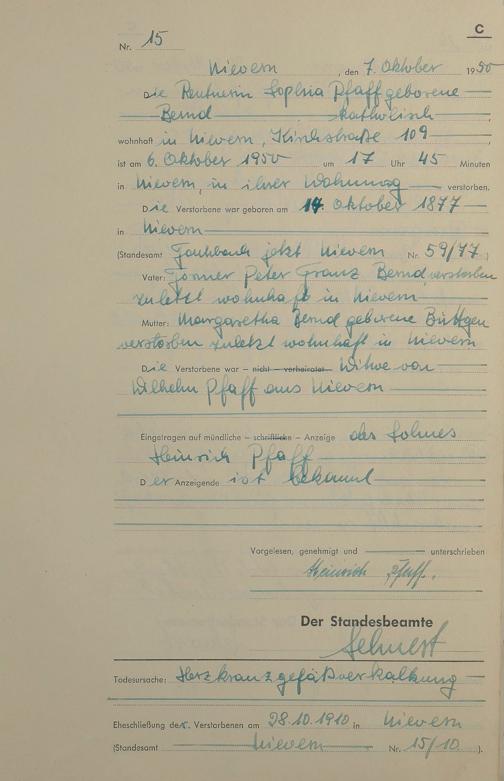 C
Nr. 15
Nievern, den 7. Oktober 1950
Die Rentnerin Sophia Pfaff geborene
Bernd katholisch
wohnhaft in Nievern, Kirchstraße 109
ist am 6. Oktober 1950 um 17 Uhr 45 Minuten
in Nievern, in ihrer Wohnung verstorben.
Die Verstorbene war geboren am 14. Oktober 1877
in Nievern
(Standesamt Fachbach jetzt Nievern Nr. 59/77)
Vater: Former Peter Franz Bernd, verstorben
zuletzt wohnhaft in Nievern
Mutter: Margaretha Bernd geborene Büttgen
verstorben zuletzt wohnhaft in Nievern
Die Verstorbene war – nicht – verheiratet Witwe von
Wilhelm Pfaff aus Nievern
Eingetragen auf mündliche – schriftliche – Anzeige des Sohnes
Heinrich Pfaff
Der Anzeigende ist bekannt
Vorgelesen, genehmigt und unterschrieben
Heinrich Pfaff.
Der Standesbeamte
Todesursache: Herzkranzgefäßverkalkung
Eheschließung der Verstorbenen am 28.10.1910 in Nievern
(Standesamt Nievern Nr. 15/10).